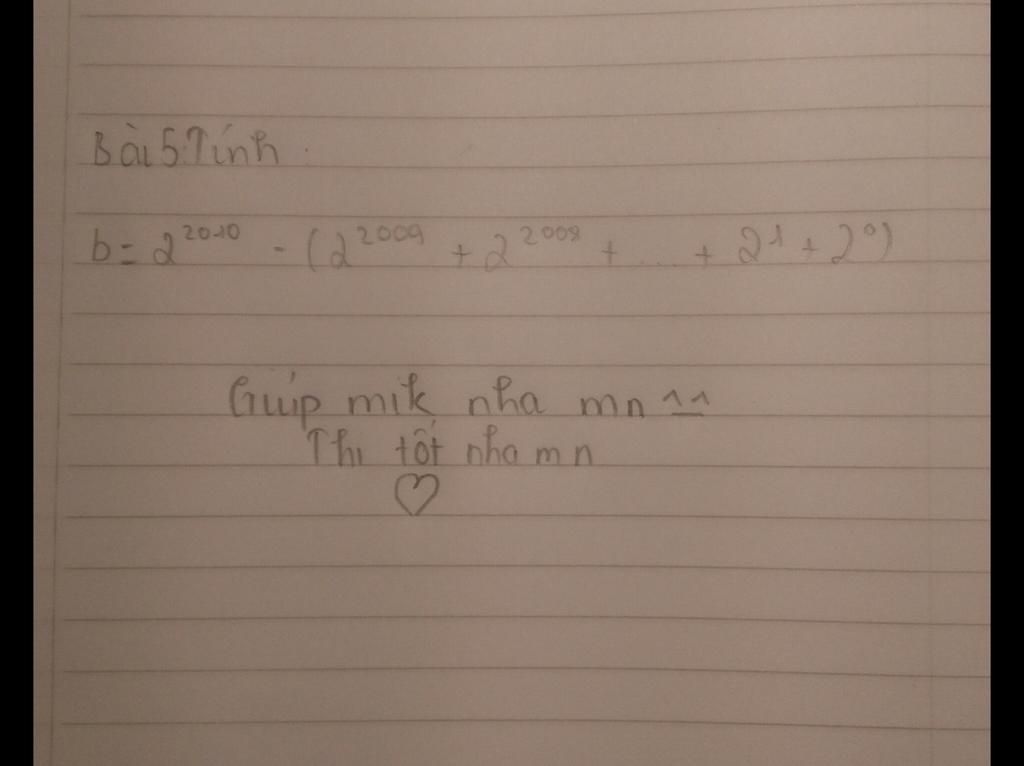 Bài 5: Tính
b = 2^2010 - (2^2009 + 2^2008 + ... + 2^1 + 2^0)
Giúp mik nha mn ^^
Thi tốt nha mn
♡